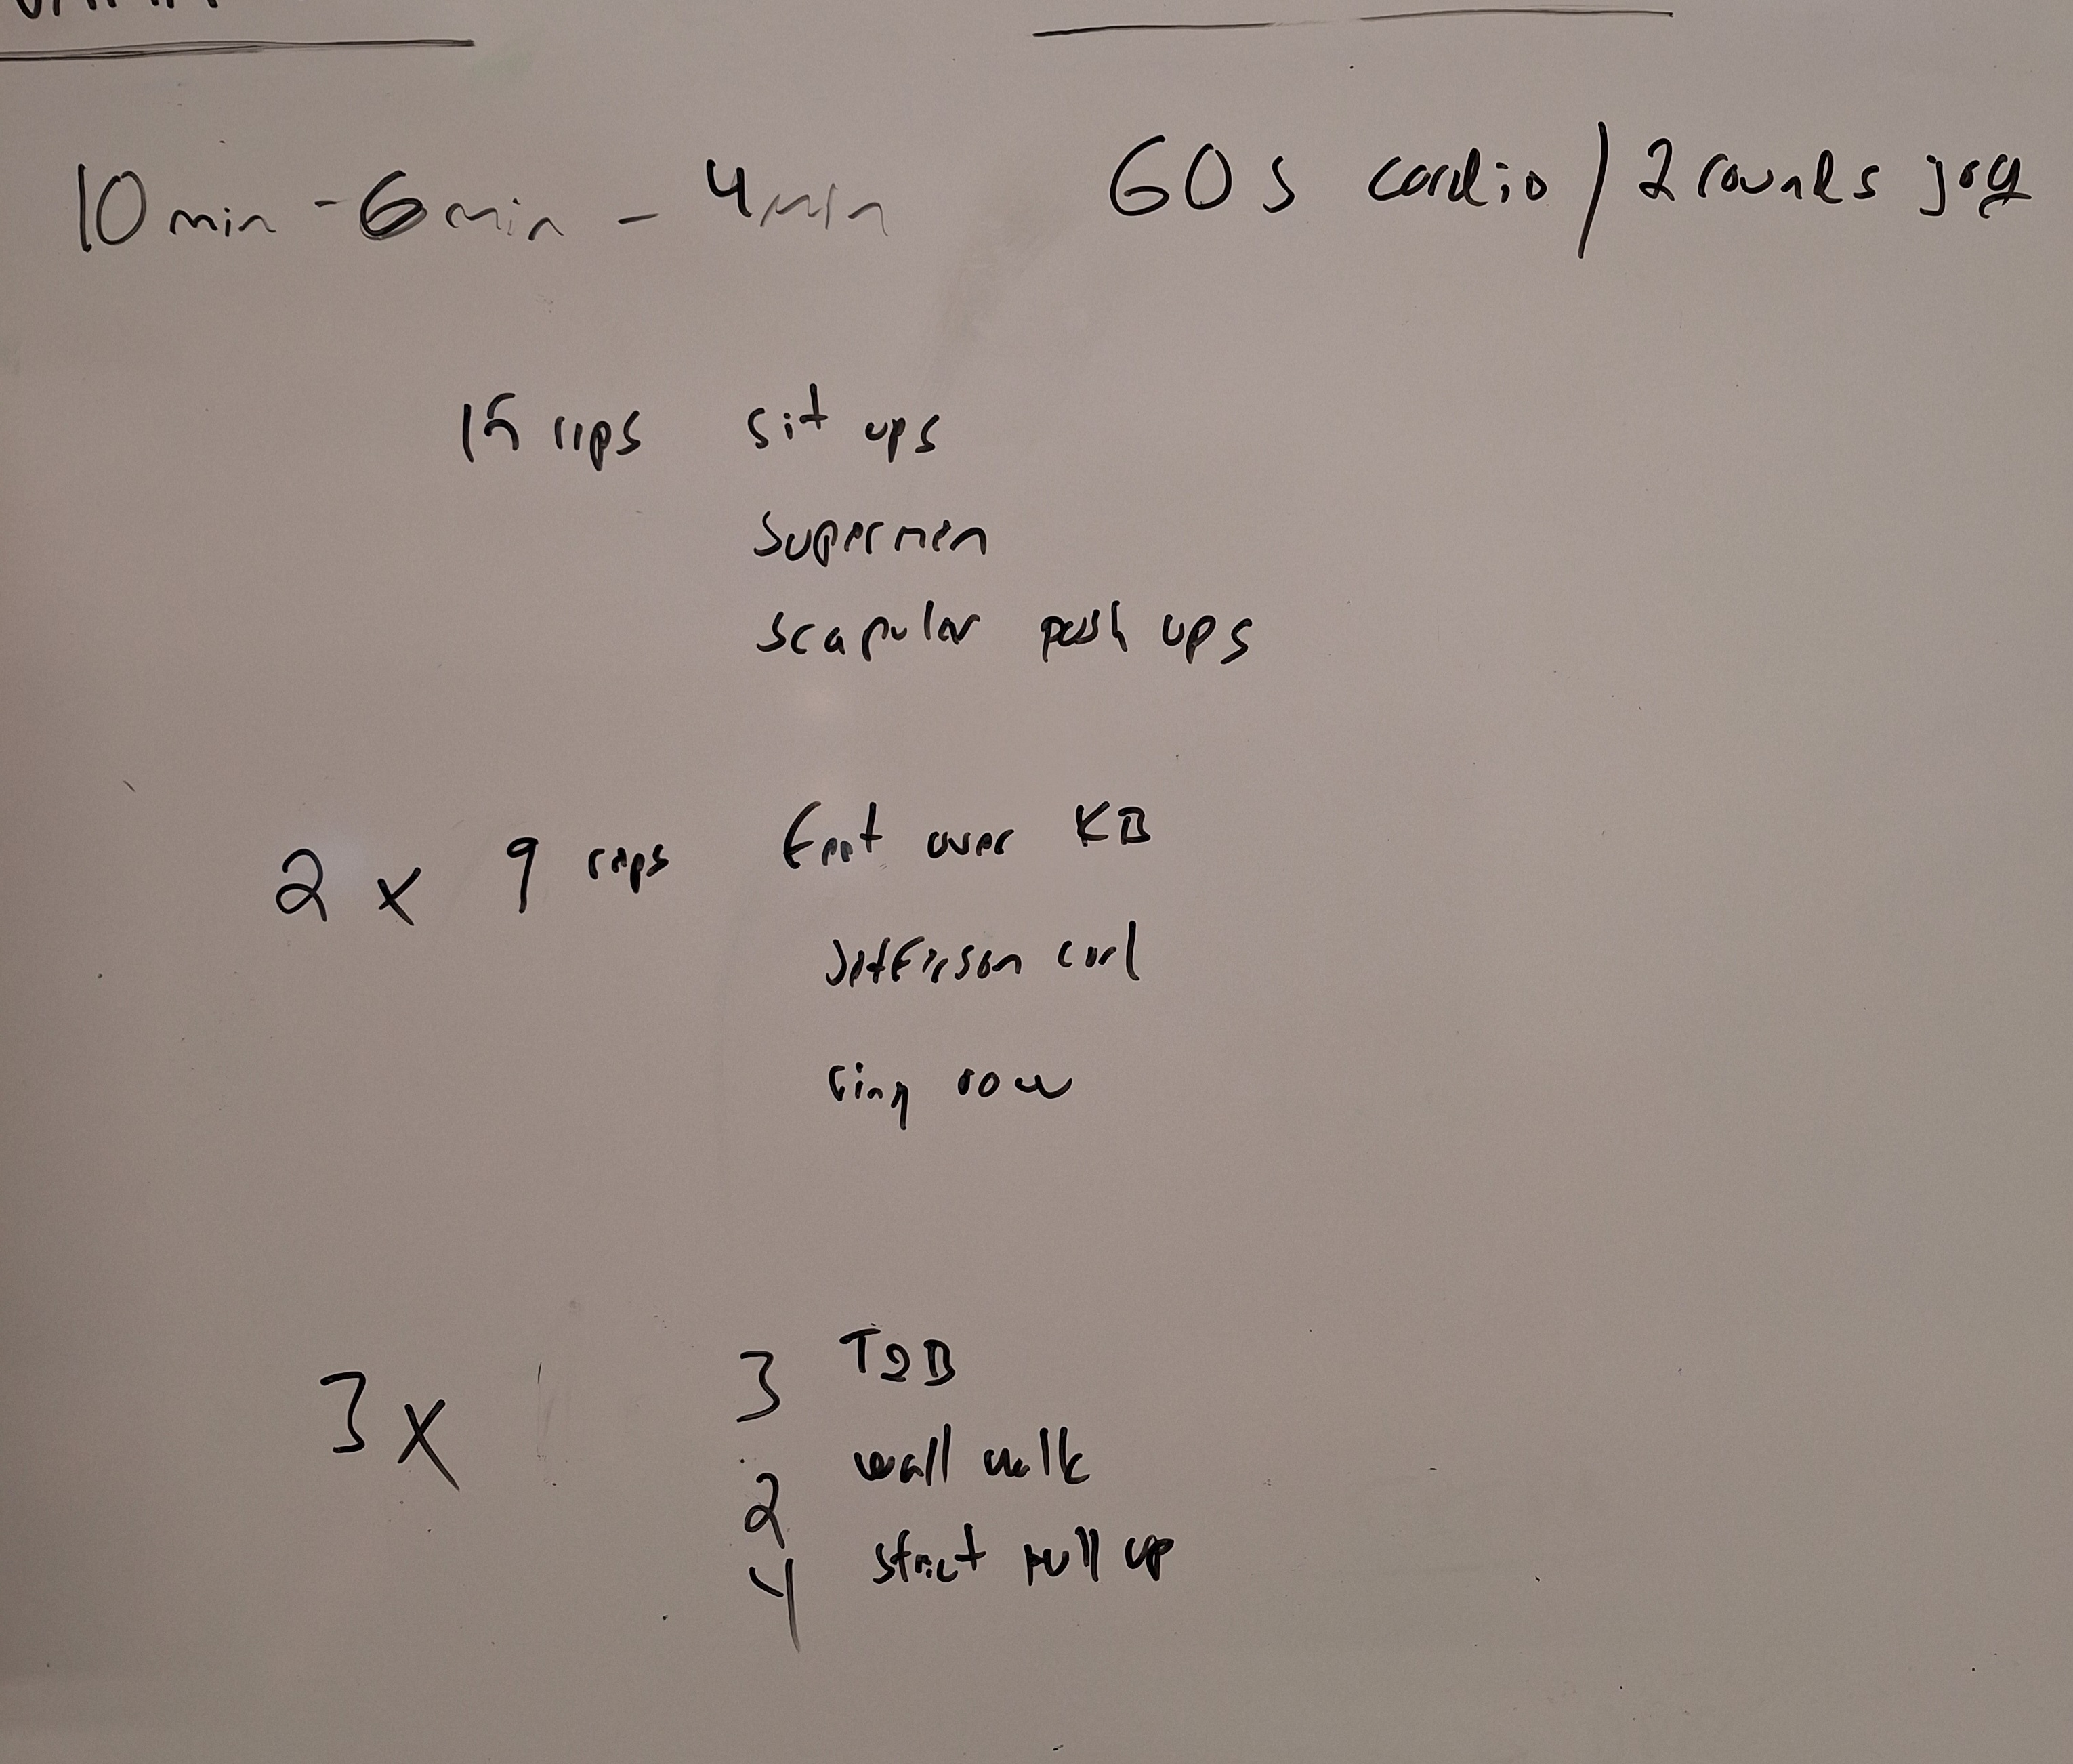 10 min - 6 min - 4 min 60 s cardio / 2 rounds jog
15 reps sit ups
supermen
scapular push ups
2 x 9 reps feet over KB
Jefferson curl
ring row
3 x 3 T2B
2 wall walk
4 strict pull up